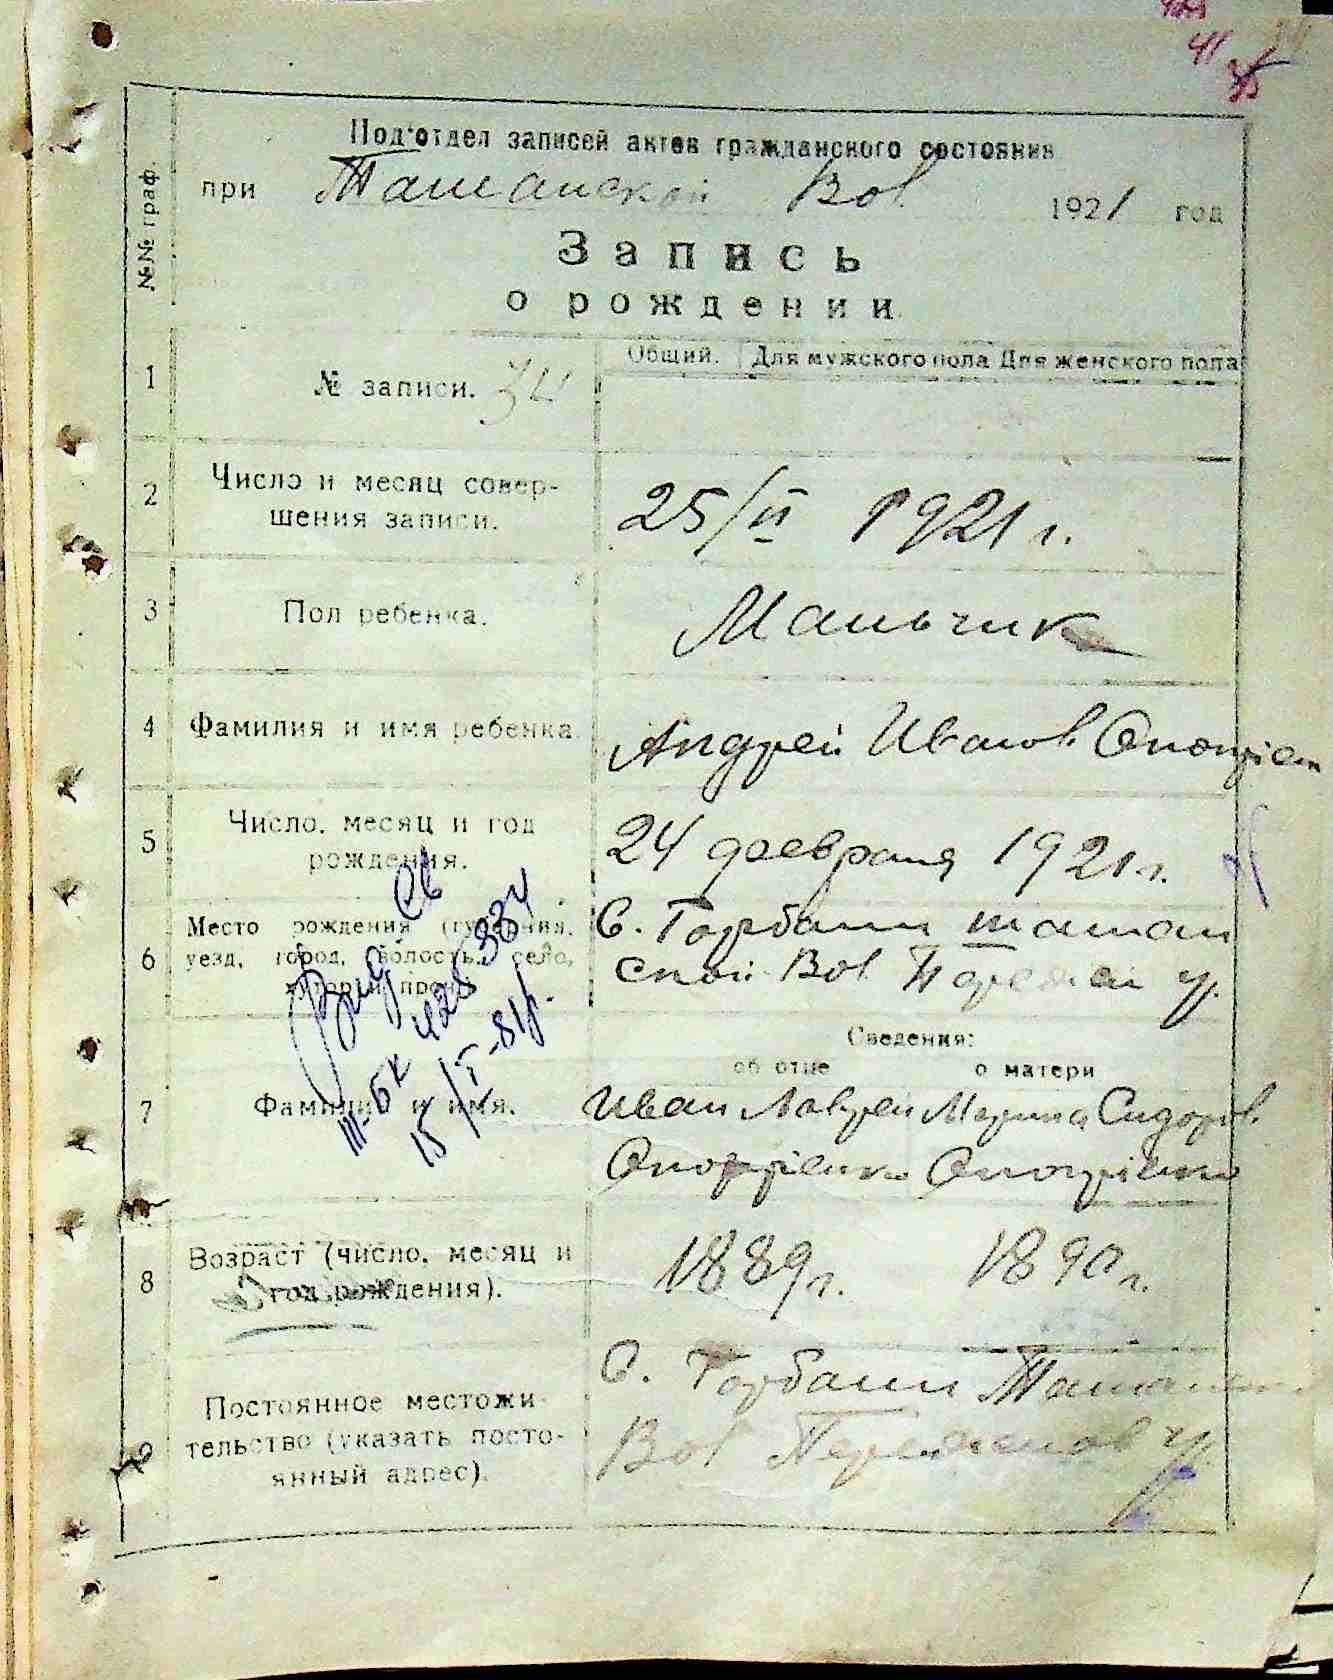 41
35
Под'отдел записей актов гражданского состояния
№№ граф.
при Ташанской Вол 1921 год
Запись
о рождении
Общий. Для мужского пола Для женского пола
1 № записи. 34
2 Число и месяц совер-
шения записи.
25/II 1921 г.
3 Пол ребенка. Мальчик
4 Фамилия и имя ребенка Андрей Иванов
5 Число, месяц и год
рождения.
24 февраля 1921 г.
6 Место рождения (губерния,
уезд, город, волость, село,
хутор и проч.)
С. Горбани Ташан
ской Вол Переясл у.
Сведения:
об отце о матери
7 Фамилия и имя.
Иван Лаврен Марина Сидоров
Оноприенко Оноприенко
8 Возраст (число, месяц и
год рождения).
1889 г. 1890 г.
9 Постоянное местожи-
тельство (указать посто-
янный адрес).
С. Горбани Ташанск
Вол Переяслов у.
Выд св
III-БК 428334
15/I-81г.